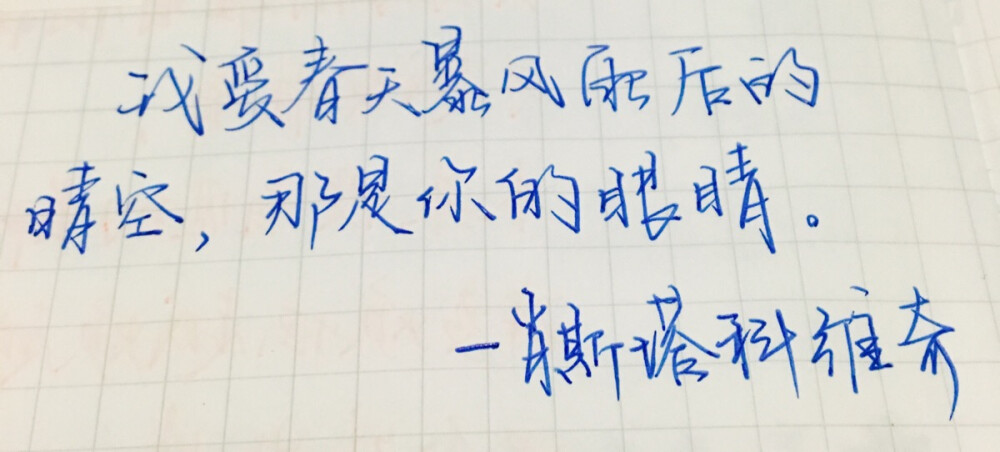 我爱春天暴风雨后的
晴空，那是你的眼睛。
—肖斯塔科维奇